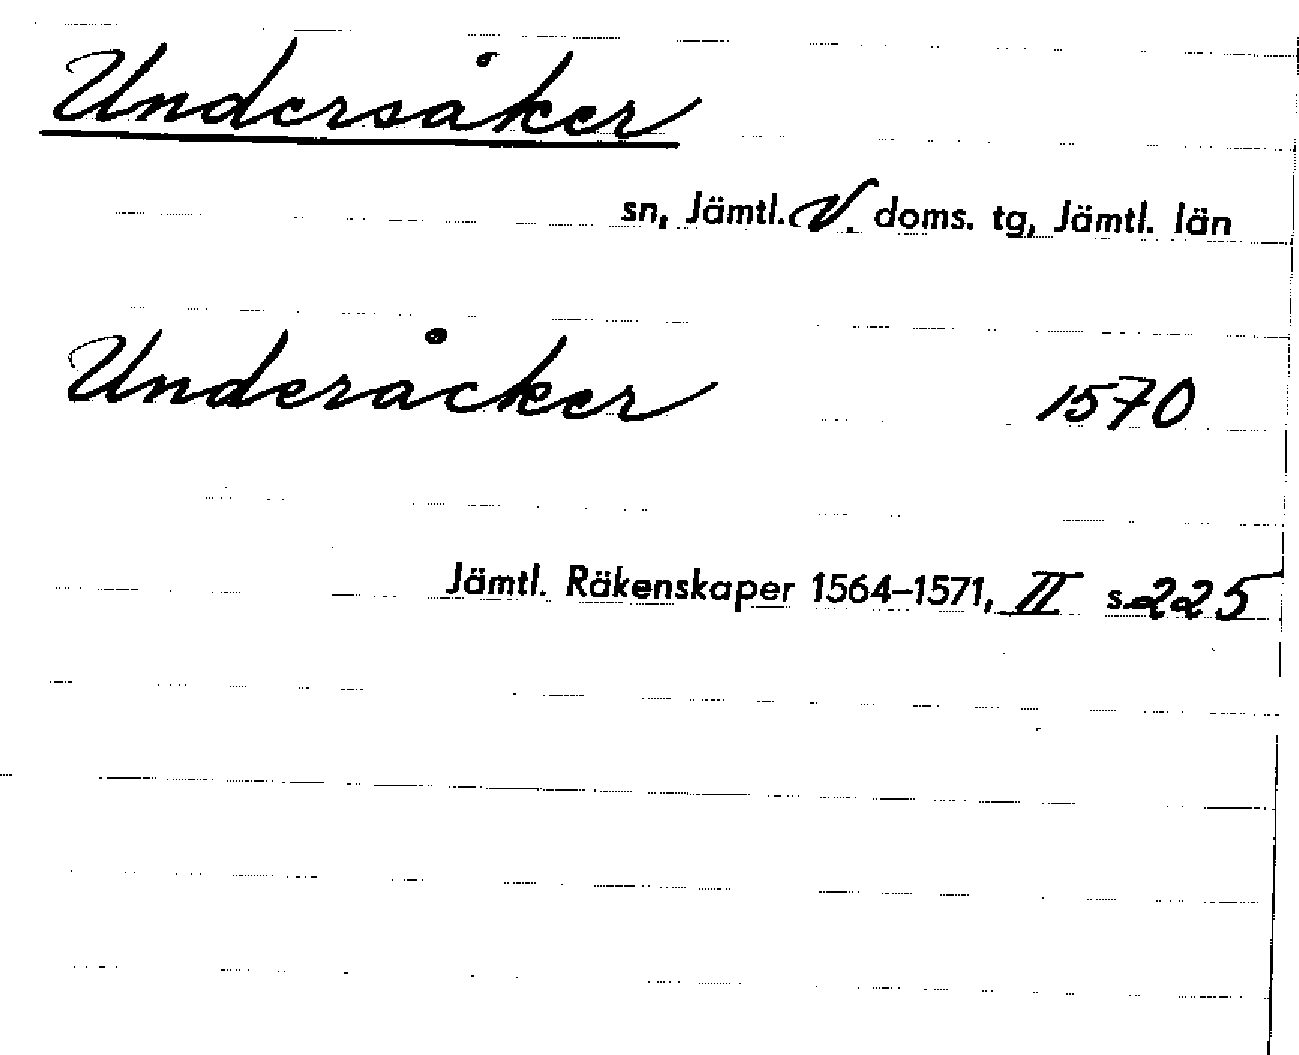 Undersåker
sn, Jämtl. V. doms. tg, Jämtl. län
Underåcker 1570
Jämtl. Räkenskaper 1564–1571, II s. 225